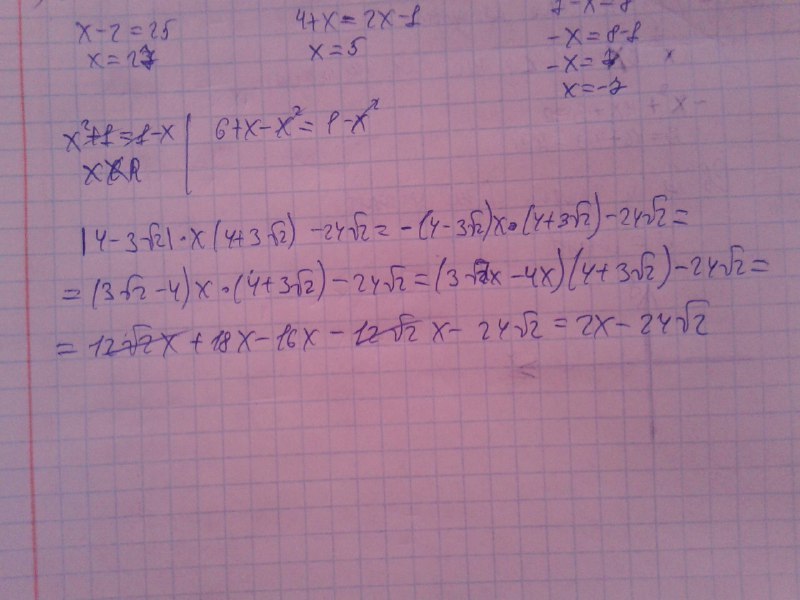 x-2=25
x=27
4+x=2x-1
x=5
7-x=8
-x=8-1
-x=7
x=-7
x²+1=1-x
6+x-x²=1-x²
|4-3√2|·x(4+3√2)-24√2=-(4-3√2)x·(4+3√2)-24√2=
=(3√2-4)x·(4+3√2)-24√2=(3√2x-4x)(4+3√2)-24√2=
=12√2x+18x-16x-12√2x-24√2=2x-24√2